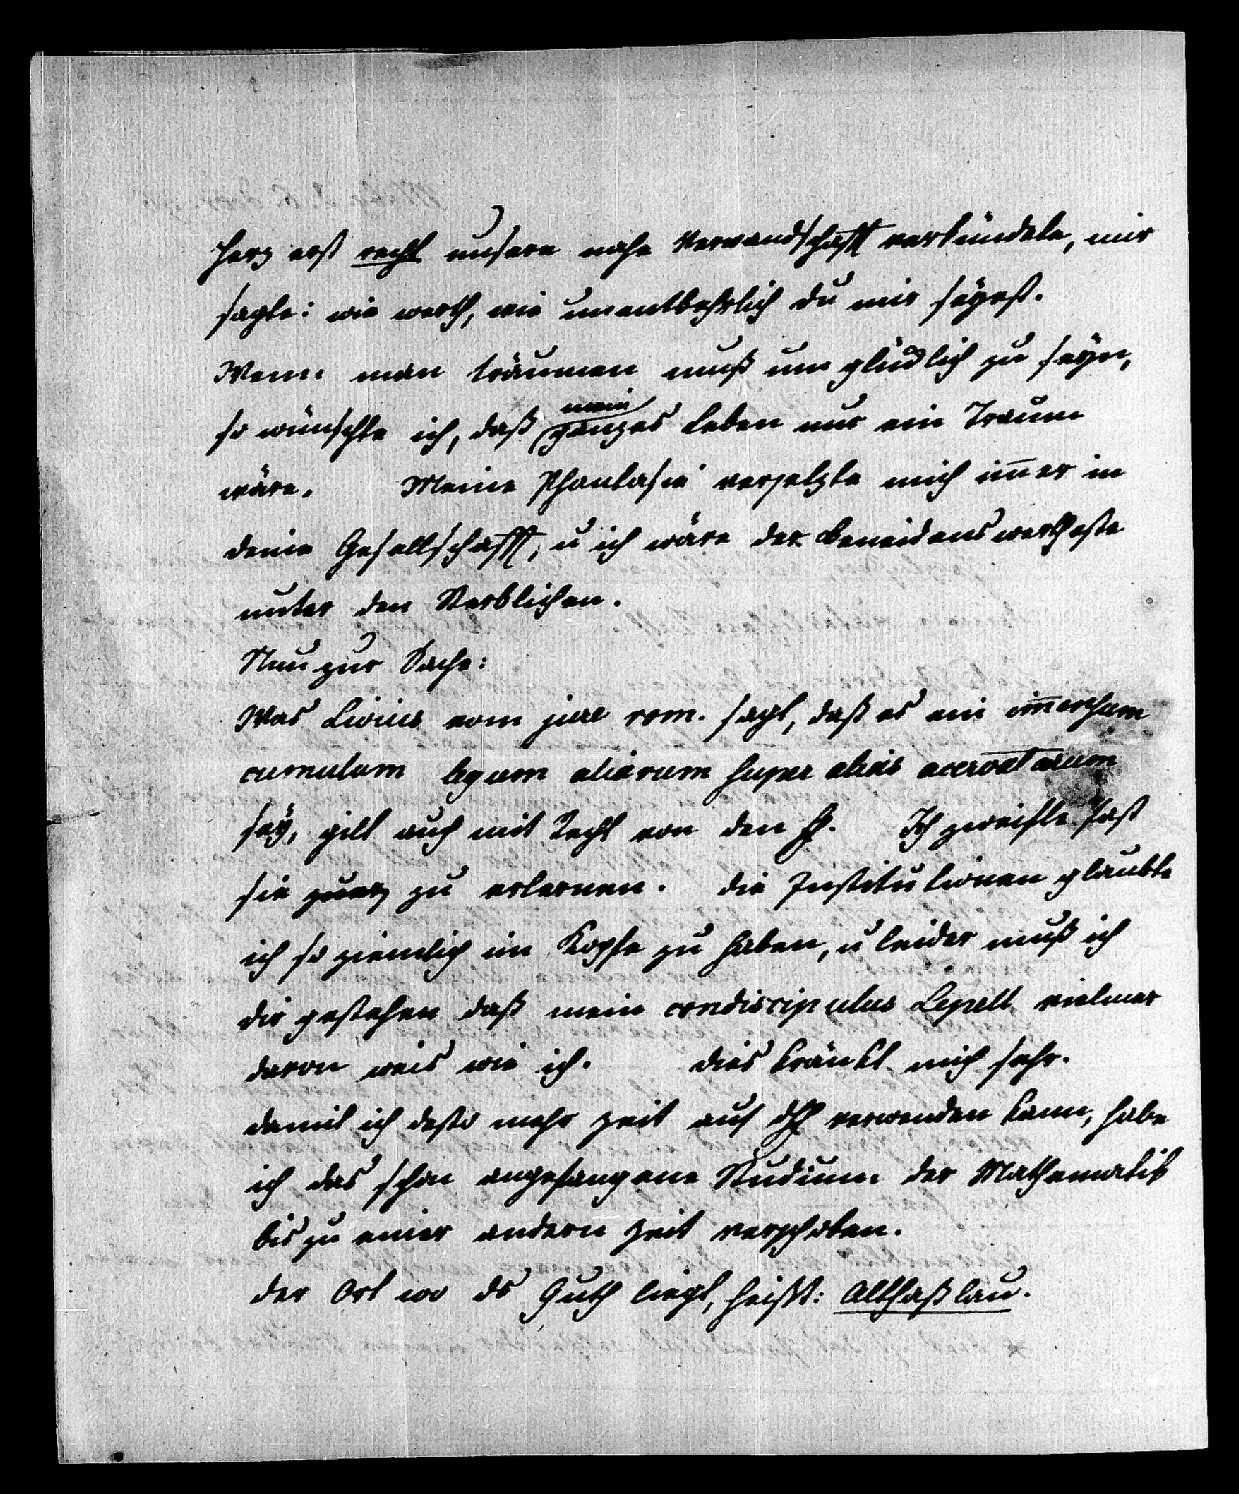 Herz erst recht unsere nahe Verwandschafft verkündete, mir
sagte: wie werth, wie unentbehrlich du mir seyest.
Wenn man träumen muß um glücklich zu seyn,
so wünschte ich, daß mein ganzes Leben nur ein Traum
wäre. Meine Phantasie versetzte mich im̄er in
deine Gesellschafft, u ich wäre der beneidenswertheste
unter den Sterblichen.
Nun zur Sache:
Was Livius vom jure rom. sagt, daß es ein im̄ensum
cumulum legum aliarum super alias acervatarum
sey, gilt auch mit Recht von den
Ich zweifle fast
sie zu erlernen. die Institutionen glaubte
ich so ziemlich im Kopfe zu haben, u leider muß ich
dir gestehen daß mein condiscipulus Lepell vielmer
davon weis wie ich. dies kränkt mich sehr.
damit ich desto mehr zeit auf verwenden kann, habe
ich das schon angefangene Studium der Mathematik
bis zu einer andern zeit verschoben.
der Ort wo ds Guth liegt, heißt: Althaßlau.